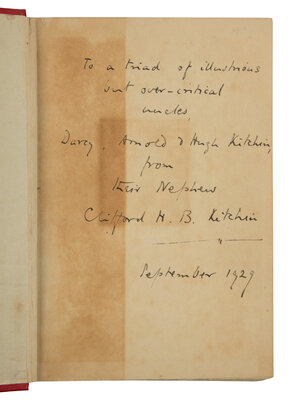 To a triad of illustrious
but over-critical
uncles,
Darcy, Arnold & Hugh Kitchin,
from
their Nephew
Clifford H. B. Kitchin
September 1929